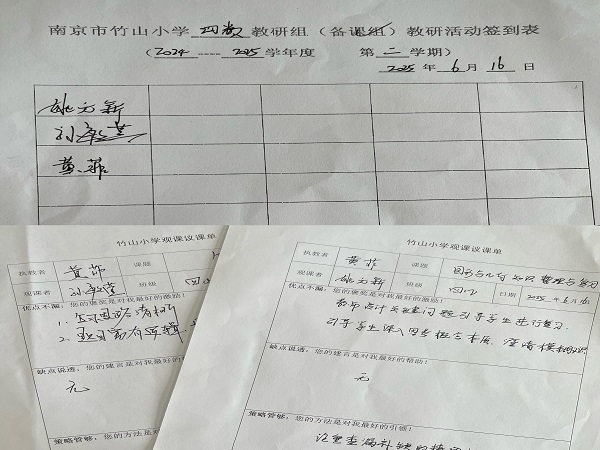 南京市竹山小学 四数 教研组（备课组）教研活动签到表
（2024 ---- 2025 学年度 第 二 学期）
2025 年 6 月 16 日
姚方新
黄菲
竹山小学观课议课单
执教者 黄菲 课题
观课者 班级 四
优点不漏：您的褒奖是对我最好的激励！
1.
2.
缺点说透：您的建言是对我最好的帮助！
无
策略管够：您的方法是对我最好的
竹山小学观课议课单
执教者 黄菲 课题 图形与几何知识整理与复习
观课者 姚方新 班级 四 日期 2025 年 6 月 16
优点不漏：您的褒奖是对我最好的激励！
教师 关键问题引导学生进行复习.
引导学生深入思考概念本质，澄清模糊认识
缺点说透：您的建言是对我最好的帮助！
无
策略管够：您的方法是对我最好的引领！
注重查漏补缺的